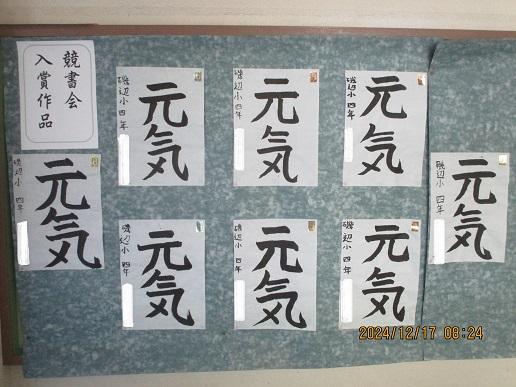 競書会
入賞作品
元気
磯辺小 四年
元気
磯辺小 四年
元気
磯辺小 四年
元気
磯辺小 四年
元気
磯辺小 四年
元気
磯辺小 四年
元気
磯辺小 四年
元気
磯辺小 四年
2024/12/17 08:24